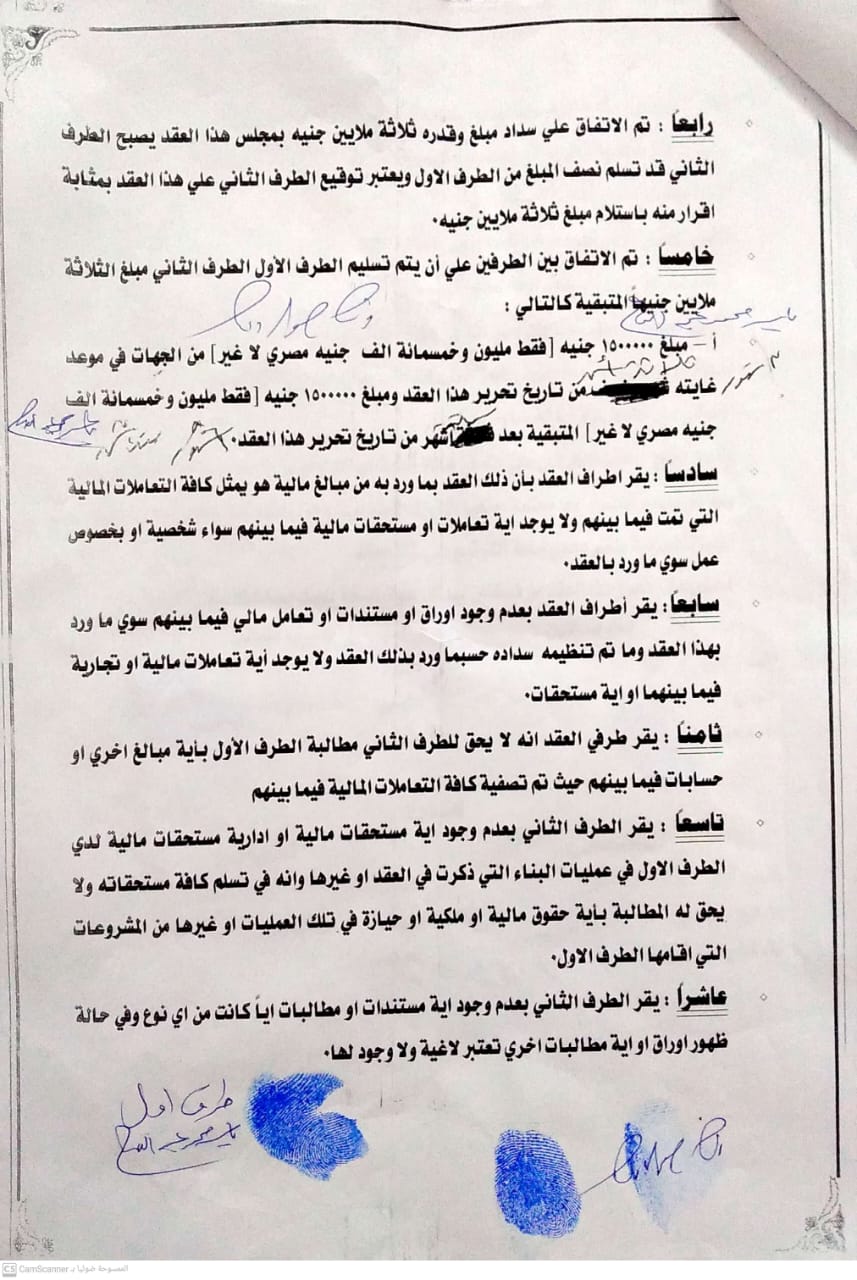 رابعاً : تم الاتفاق علي سداد مبلغ وقدره ثلاثة ملايين جنيه بمجلس هذا العقد يصبح الطرف
الثاني قد تسلم نصف المبلغ من الطرف الاول ويعتبر توقيع الطرف الثاني علي هذا العقد بمثابة
اقرار منه باستلام مبلغ ثلاثة ملايين جنيه.
خامساً : تم الاتفاق بين الطرفين علي أن يتم تسليم الطرف الأول الطرف الثاني مبلغ الثلاثة
ملايين جنيهاً المتبقية كالتالي :
أ – مبلغ ١٥٠٠٠٠٠ جنيه [فقط مليون وخمسمائة الف جنيه مصري لا غير] من الجهات في موعد
ثلاثة أشهر ٣ شهور
غايته من تاريخ تحرير هذا العقد ومبلغ ١٥٠٠٠٠٠ جنيه [فقط مليون وخمسمائة الف
جنيه مصري لا غير] المتبقية بعد ستة اشهر من تاريخ تحرير هذا العقد.
سادساً : يقر اطراف العقد بأن ذلك العقد بما ورد به من مبالغ مالية هو يمثل كافة التعاملات المالية
التي تمت فيما بينهم ولا يوجد اية تعاملات او مستحقات مالية فيما بينهم سواء شخصية او بخصوص
عمل سوي ما ورد بالعقد.
سابعاً : يقر أطراف العقد بعدم وجود اوراق او مستندات او تعامل مالي فيما بينهم سوي ما ورد
بهذا العقد وما تم تنظيمه سداده حسبما ورد بذلك العقد ولا يوجد أية تعاملات مالية او تجارية
فيما بينهما او اية مستحقات.
ثامناً : يقر طرفي العقد انه لا يحق للطرف الثاني مطالبة الطرف الأول بأية مبالغ اخري او
حسابات فيما بينهم حيث تم تصفية كافة التعاملات المالية فيما بينهم
تاسعاً : يقر الطرف الثاني بعدم وجود اية مستحقات مالية او ادارية مستحقات مالية لدي
الطرف الاول في عمليات البناء التي ذكرت في العقد او غيرها وانه في تسلم كافة مستحقاته ولا
يحق له المطالبة بأية حقوق مالية او ملكية او حيازة في تلك العمليات او غيرها من المشروعات
التي اقامها الطرف الاول.
عاشراً : يقر الطرف الثاني بعدم وجود اية مستندات او مطالبات اياً كانت من اي نوع وفي حالة
ظهور اوراق او اية مطالبات اخري تعتبر لاغية ولا وجود لها.
طرف اول
الممسوحة ضوئيا بـ CamScanner
CS